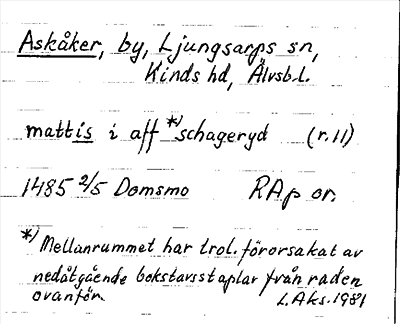 Askåker, by, Ljungsarps sn,
Kinds hd, Älvsb.l.
mattis i aff *)schageryd (r.11)
1485 2/5 Domsmo RAp or.
*) Mellanrummet har trol. förorsakat av
nedåtgående bokstavsstaplar från raden
ovanför. L.Aks. 1981